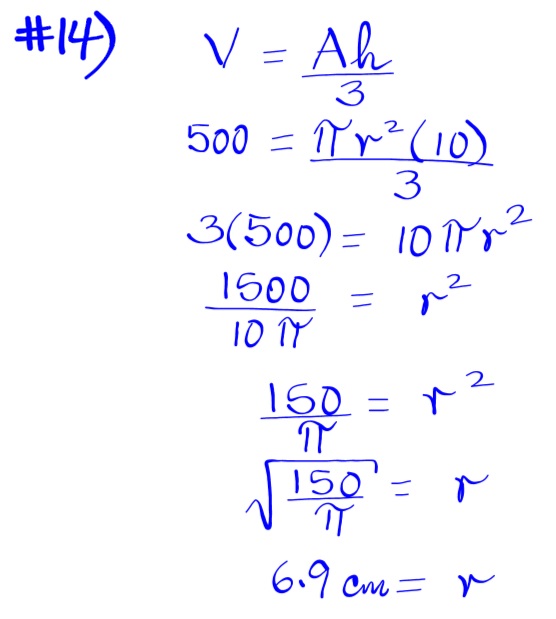 #14) V = Ah/3
500 = πr²(10)/3
3(500) = 10πr²
1500/10π = r²
150/π = r²
√(150/π) = r
6.9 cm = r